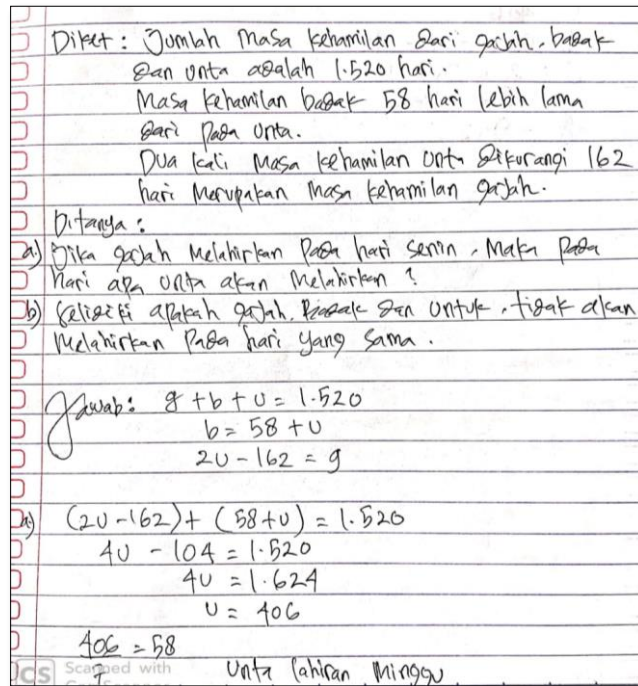 Diket : Jumlah masa kehamilan dari gajah, badak
dan unta adalah 1.520 hari.
Masa kehamilan badak 58 hari lebih lama
dari pada unta.
Dua kali masa kehamilan unta dikurangi 162
hari merupakan masa kehamilan gajah.
Ditanya :
a.) Jika gajah melahirkan pada hari senin, maka pada
hari apa unta akan melahirkan ?
b) Selidiki apakah gajah, badak dan untuk, tidak akan
melahirkan pada hari yang sama.
Jawab : g + b + u = 1.520
b = 58 + u
2u - 162 = g
a.) (2u - 162) + (58 + u) = 1.520
4u - 104 = 1.520
4u = 1.624
u = 406
406 = 58
7
unta lahiran minggu
CS Scanned with